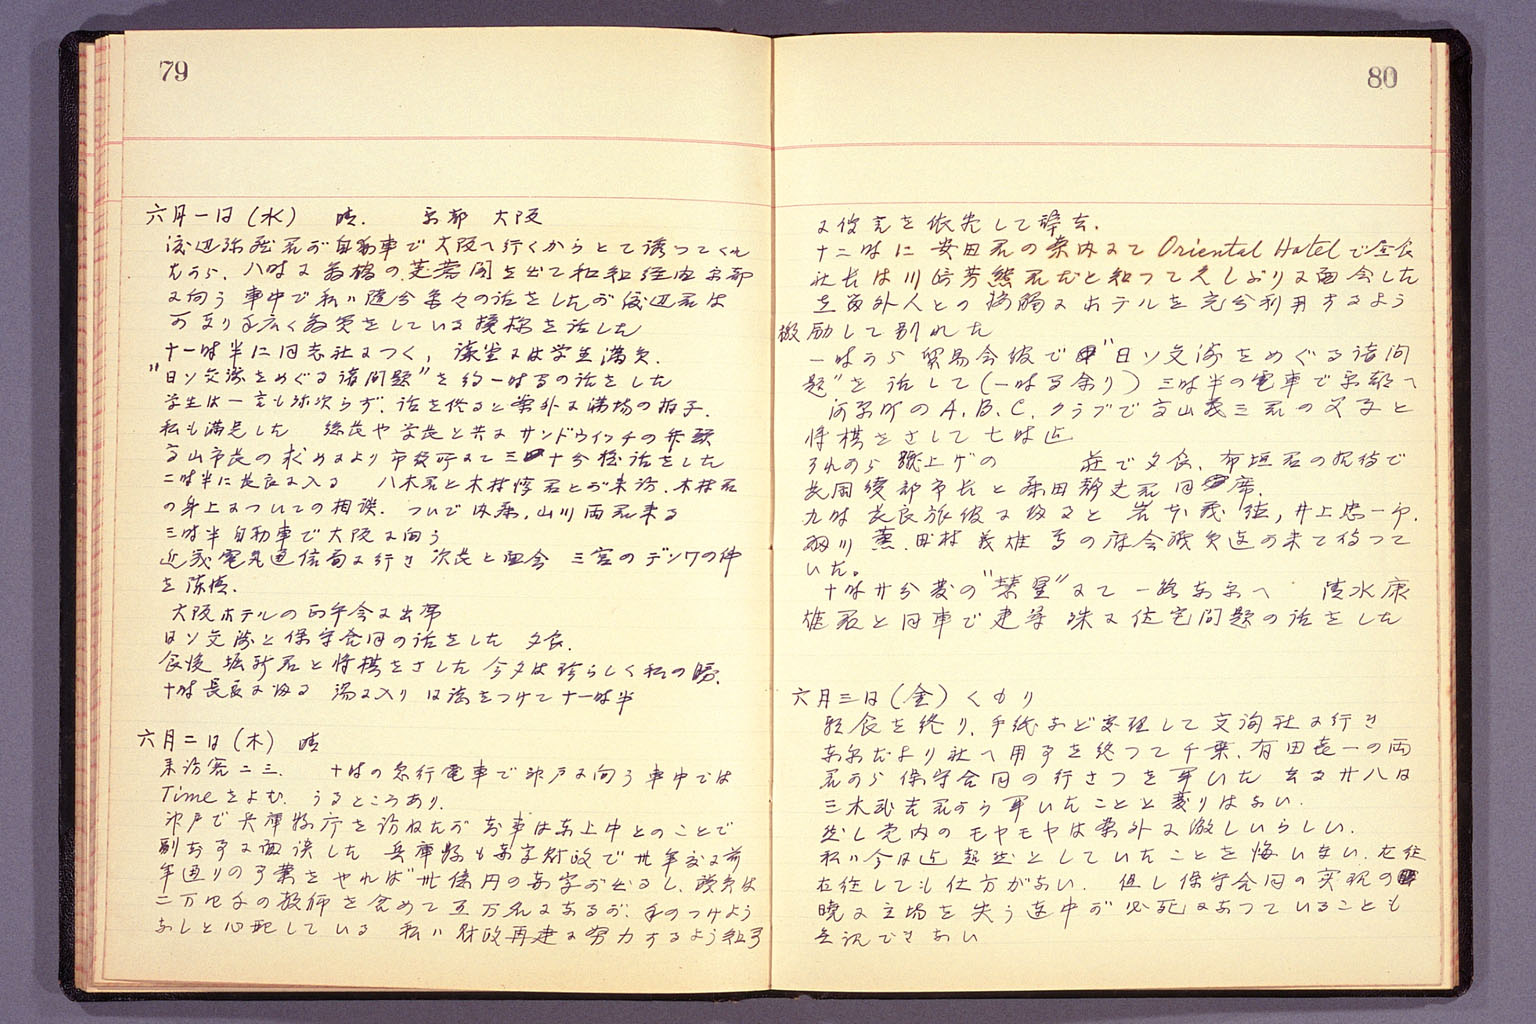 79
六月一日(水) 晴. 京都 大阪
渡辺弥蔵君が自動車で大阪へ行くからとて誘つてくれ
たから、八時に
に向う 車中で私は随分色々の話をしたが渡辺君は
可なり手広く商売をしている模様を話した
十一時半に同志社につく, 講堂には学生満員.
"日ソ交渉をめぐる諸問題"を約一時間の話をした
学生は一言も弥次らず、話を終ると案外に満場の拍手.
私も満足した 総長や学長と共にサンドウイッチの弁頭
高山市長の求めにより市役所にて三十分程話をした
二時半に長良に入る 八木君と木村惇君とが来訪. 木村君
の身上についての相談. ついで内藤, 山川両君来る
三時半自動車で大阪に向う
近畿電気通信局に行き 次長と面会 三宮のデンワの件
を陳情.
大阪ホテルの丙午会に出席
日ソ交渉と保守合同の話をした 夕食.
食後 堀新君と将棋をさした 今夕は珍らしく私の勝.
十時長良に帰る 湯に入り日誌をつけて十一時半
六月二日(木) 晴
来訪客二三. 十時の急行電車で神戸に向う 車中では
Timeをよむ. うるところあり.
神戸で兵庫県庁を訪ねたが知事は東上中とのことで
副知事に面談した 兵庫県も赤字財政で卅年度に前
年通りの事業をやれば卅億円の赤字が出るし、職員は
二万七千の教師を含めて五万名にあるが、手のつけよう
なしと心配している 私は財政再建に努力するよう知事
80
に伝言を依頼して辞去.
十二時に安田君の案内にてOriental Hotelで昼食
社長は川崎芳熊君だと知つて久しぶりに面会した
在留外人との接触にホテルを充分利用するよう
激励して別れた
一時から貿易会館で"日ソ交渉をめぐる諸問
題"を話して(一時間余り) 三時半の電車で京都へ
河原町のA.B.C.クラブで高山義三君の父子と
将棋をさして七時迄
それから蹴上ゲの 荘で夕食. 市垣君の招待で
長岡綾部市長と桑田静丈君同席.
九時長良旅館に帰ると岩本義雄, 井上忠一郎.
羽川 薫. 田村 義雄等の府会議員連が来て待つて
いた。
十時廿分発の"彗星"にて一路東京へ 清水康
雄君と同車で建築殊に住宅問題の話をした
六月三日(金) くもり
朝食を終り、手紙など整理して交詢社に行き
東京だより社へ用事を終つて千葉、有田喜一の両
君から保守合同の行きさつを聞いた 去る廿八日
三木武吉君から聞いたことと変りはない.
然し党内のモヤモヤは案外に激しいらしい.
私は今日迄超然としていたことを悔いない. 在位
在位しても仕方がない. 但し保守合同の実現の
暁に立場を失う連中が必死になつていることも
無視できない